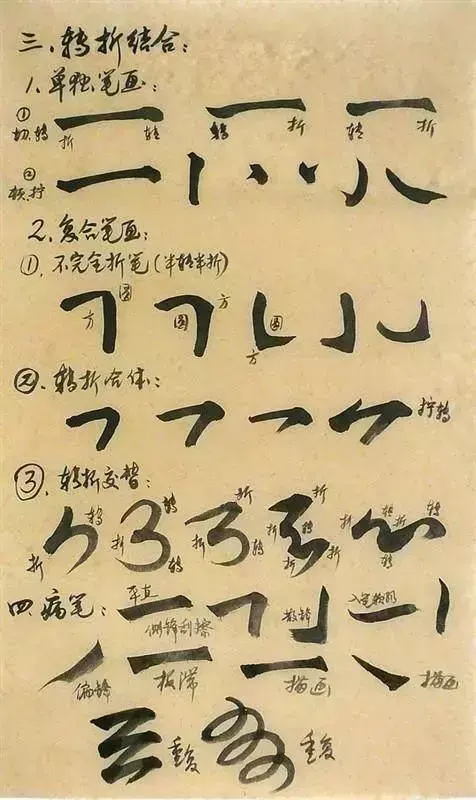 三、转折结合：
1.单独笔画：
① 切.转
折 转 转 折 转 折
② 顿.拧
2.复合笔画：
①.不完全折笔（半转半折）
方 圆 圆 方 圆 方
②.转折合体：
拧转
③.转折交替：
折 转 折 转 转 折 折 转 折 折 转 折 折 折 转 折 转 转
四.病笔：
平直 侧锋刮擦 散锋 入笔软弱
偏锋 板滞 描画 描画
重复 重复